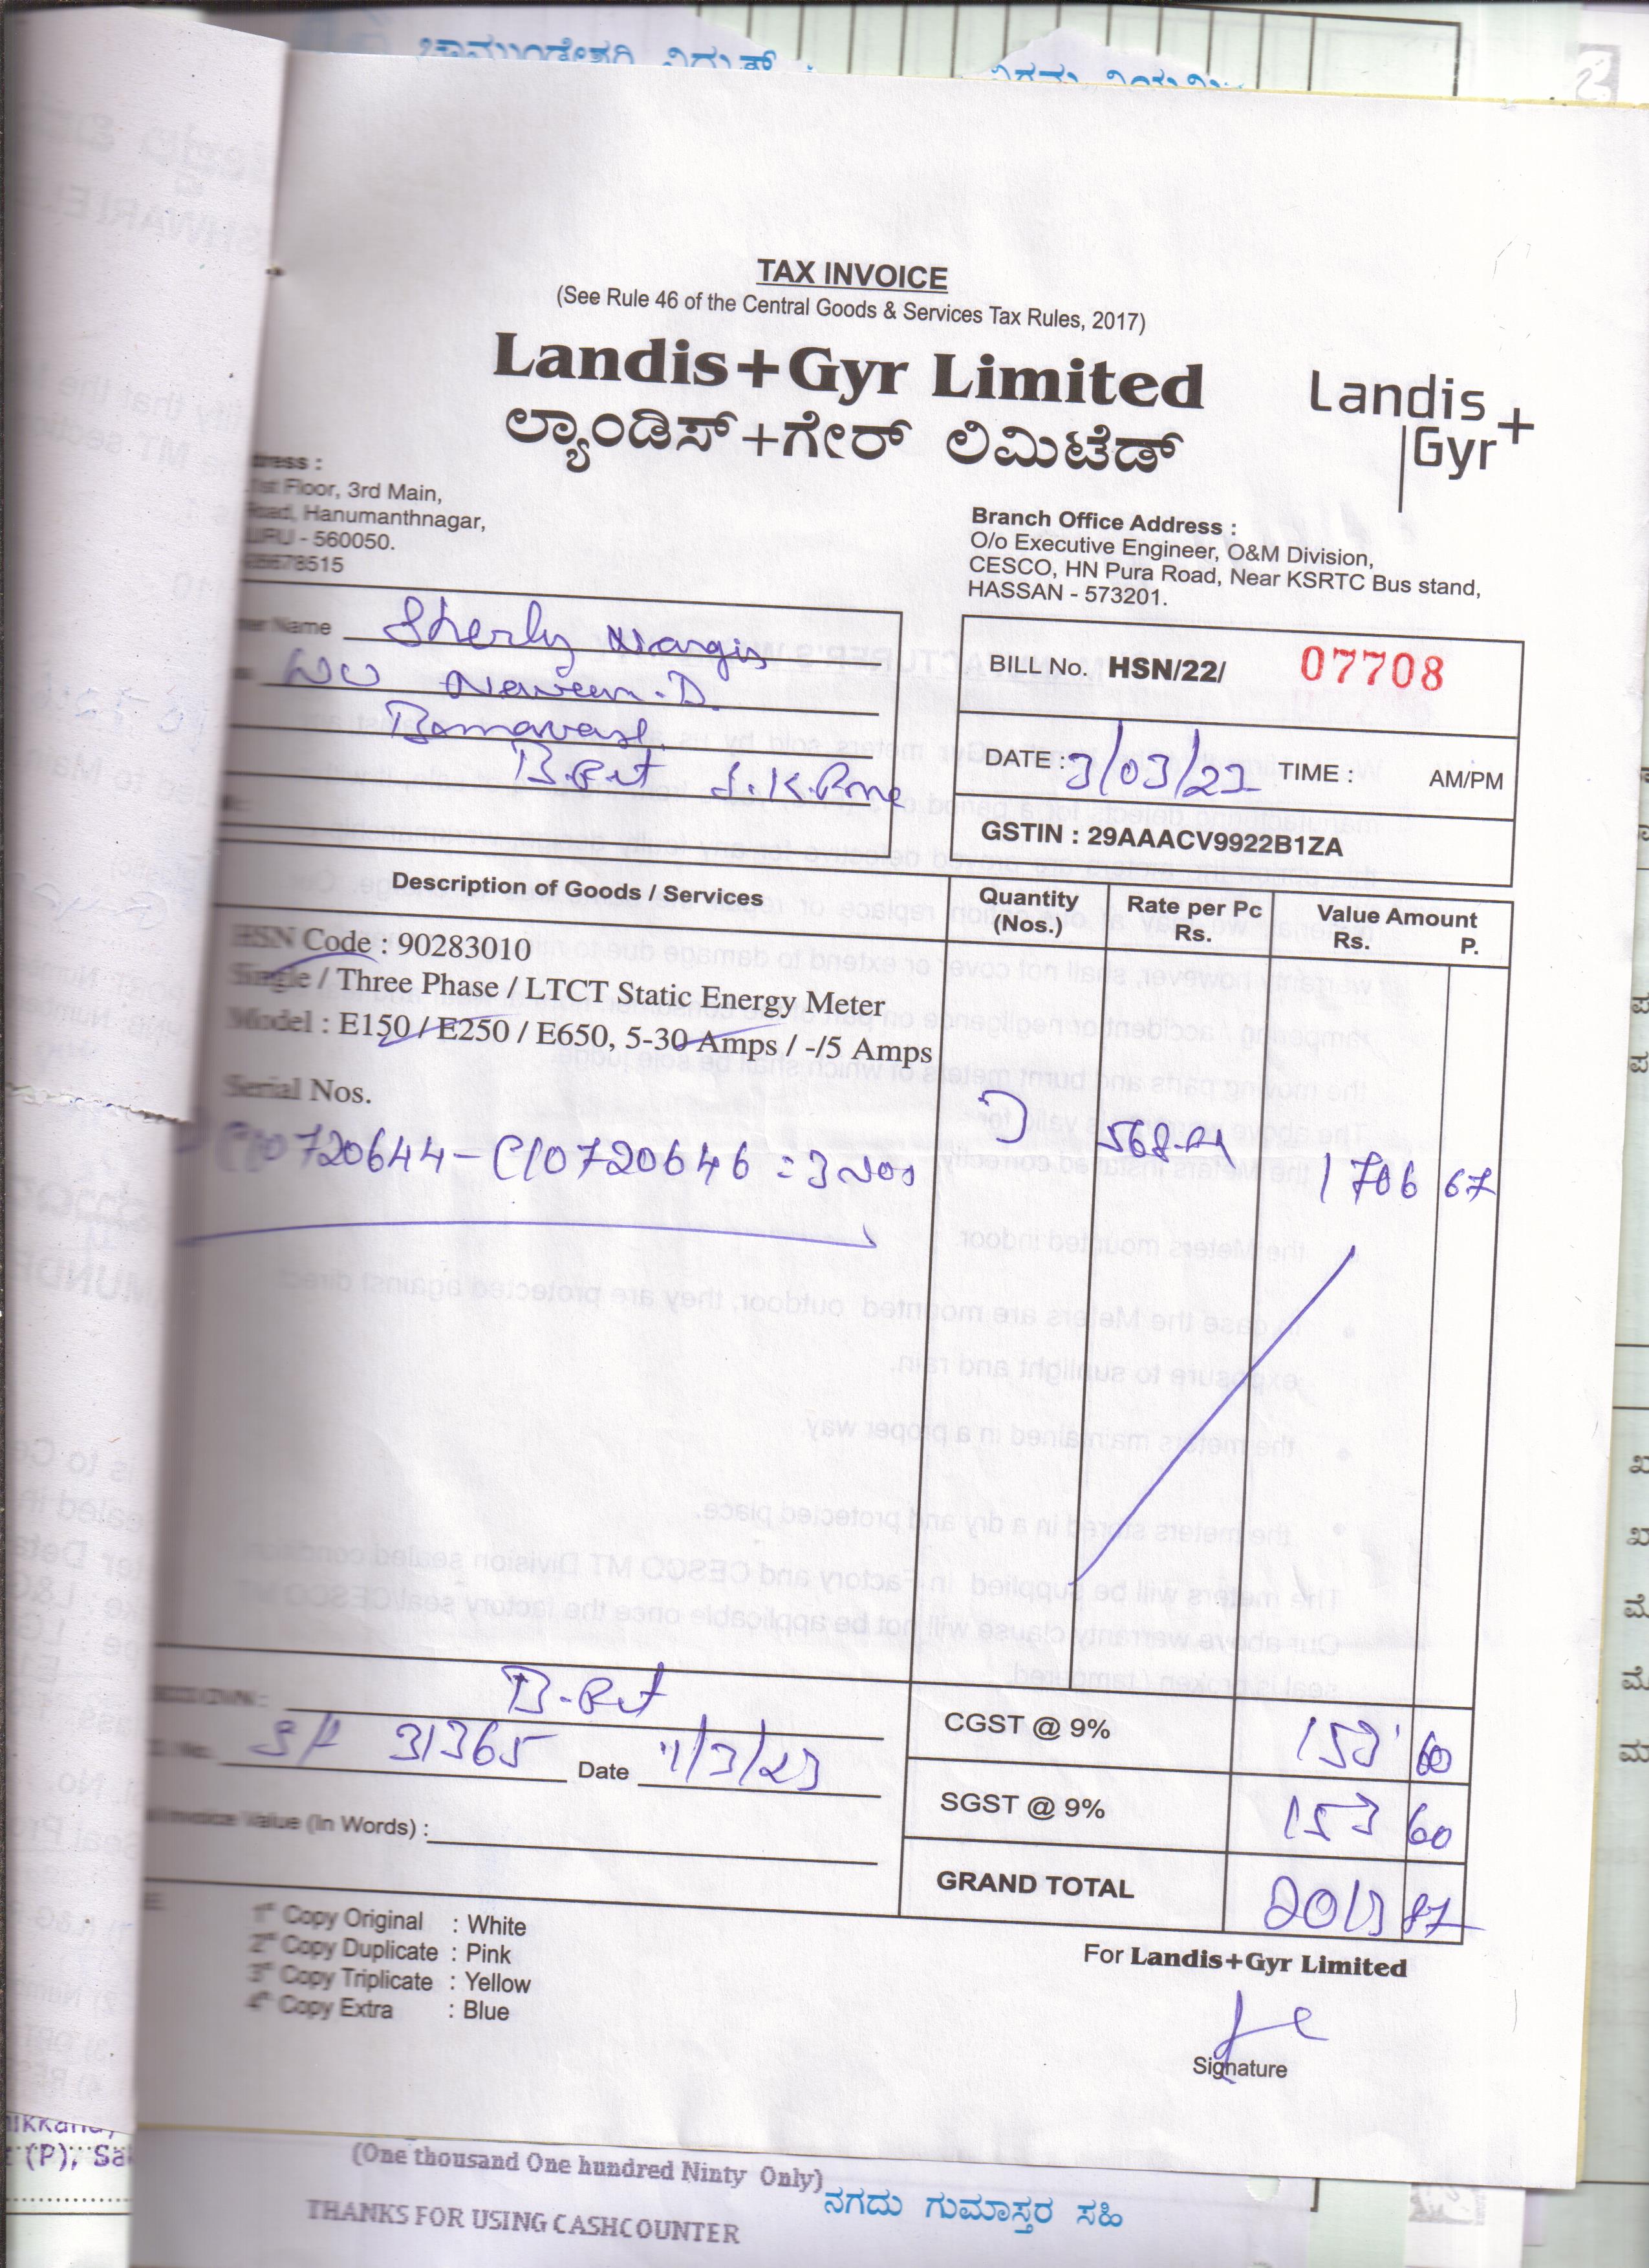 ಚಾಮುಂಡೇಶ್ವರಿ ವಿದ್ಯುತ್
TAX INVOICE
(See Rule 46 of the Central Goods & Services Tax Rules, 2017)
Landis+Gyr Limited
ಲ್ಯಾಂಡಿಸ್+ಗೇರ್ ಲಿಮಿಟೆಡ್
Landis+
Gyr
dress :
1st Floor, 3rd Main,
Road, Hanumanthnagar,
URU - 560050.
26678515
Branch Office Address :
O/o Executive Engineer, O&M Division,
CESCO, HN Pura Road, Near KSRTC Bus stand,
HASSAN - 573201.
Name Sherly Nargis
W/o Naveen.D.
B.Pet
BILL No. HSN/22/ 07708
DATE : 3/03/23 TIME : AM/PM
GSTIN : 29AAACV9922B1ZA
Description of Goods / Services Quantity (Nos.) Rate per Pc Rs. Value Amount Rs. P.
HSN Code : 90283010
Single / Three Phase / LTCT Static Energy Meter
Model : E150 / E250 / E650, 5-30 Amps / -/5 Amps
Serial Nos.
C10720644 - C10720646 = 3 Nos 3 568.91 1706 67
B.Pet
CGST @ 9% 153 60
31365 Date 1/3/23
SGST @ 9% 153 60
Invoice Value (In Words) :
GRAND TOTAL 2013 87
1st Copy Original : White
2nd Copy Duplicate : Pink
3rd Copy Triplicate : Yellow
4th Copy Extra : Blue
For Landis+Gyr Limited
Signature
(P), Sa
(One thousand One hundred Ninty Only)
ನಗದು ಗುಮಾಸ್ತರ ಸಹಿ
THANKS FOR USING CASHCOUNTER